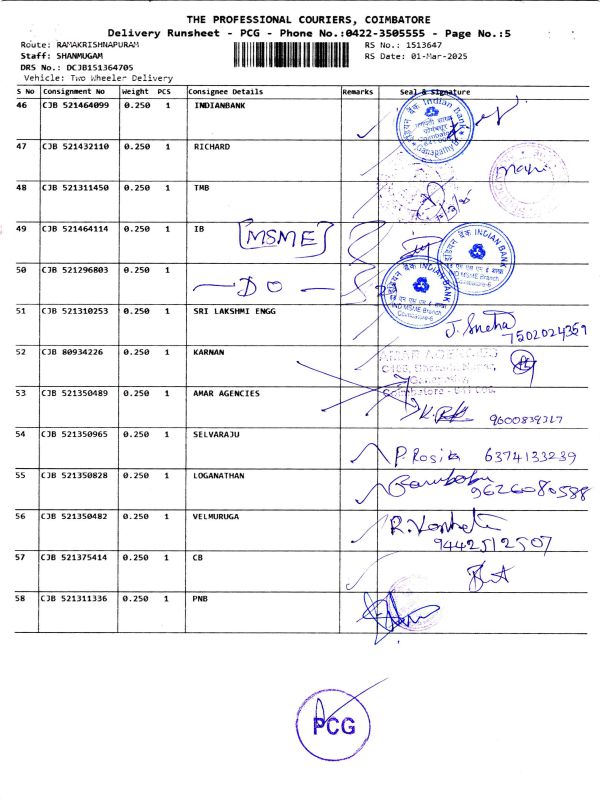 THE PROFESSIONAL COURIERS, COIMBATORE
Delivery Runsheet - PCG - Phone No.:0422-3505555 - Page No.:5
Route: RAMAKRISHNAPURAM RS No.: 1513647
Staff: SHANMUGAM RS Date: 01-Mar-2025
DRS No.: DCJB151364705
Vehicle: Two Wheeler Delivery
S No Consignment No Weight PCS Consignee Details Remarks Seal & Signature
46 CJB 521464099 0.250 1 INDIANBANK
47 CJB 521432110 0.250 1 RICHARD
48 CJB 521311450 0.250 1 TMB
49 CJB 521464114 0.250 1 IB MSME
INDIAN BANK
50 CJB 521296803 0.250 1 DO
INDIAN BANK
IND MSME Branch
Coimbatore-6
51 CJB 521310253 0.250 1 SRI LAKSHMI ENGG J. Sneha
7502024359
52 CJB 80934226 0.250 1 KARNAN
AMAR AGENCIES
53 CJB 521350489 0.250 1 AMAR AGENCIES
9600839317
54 CJB 521350965 0.250 1 SELVARAJU P. Rosie 6374133239
55 CJB 521350828 0.250 1 LOGANATHAN
9626080588
56 CJB 521350482 0.250 1 VELMURUGA
9442512507
57 CJB 521375414 0.250 1 CB
58 CJB 521311336 0.250 1 PNB
PCG